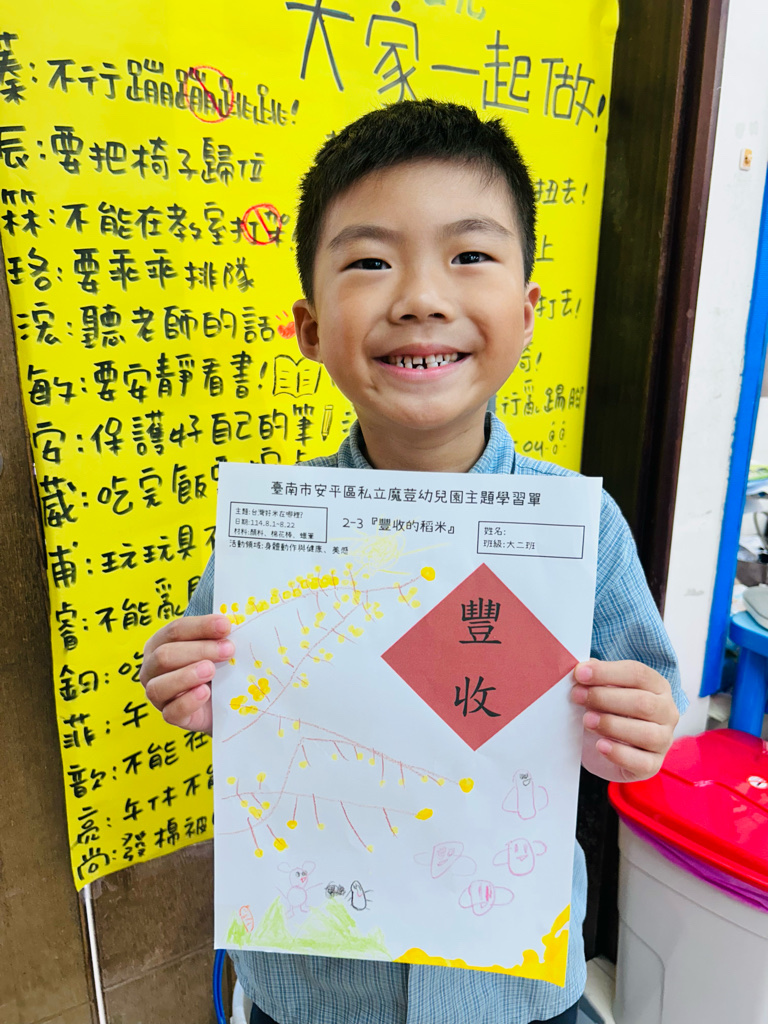 大家一起做!
蓁:不行蹦蹦跳跳!
辰:要把椅子歸位
霖:不能在教室打架!
珞:要乖乖排隊
浤:聽老師的話
敏:要安靜看書!
安:保護好自己的筆
葳:吃完飯
甫:玩玩具不
睿:不能亂
鈞:吃
菲:午
歆:不能在
亮:午休不能
尚:發棉被
扭去!
上
打去!
行亂踢腳
臺南市安平區私立魔荳幼兒園主題學習單
主題:台灣好米在哪裡?
日期:114.8.1-8.22
材料:顏料、棉花棒、蠟筆
2-3『豐收的稻米』
姓名:
班級:大二班
活動領域:身體動作與健康、美感
豐
收